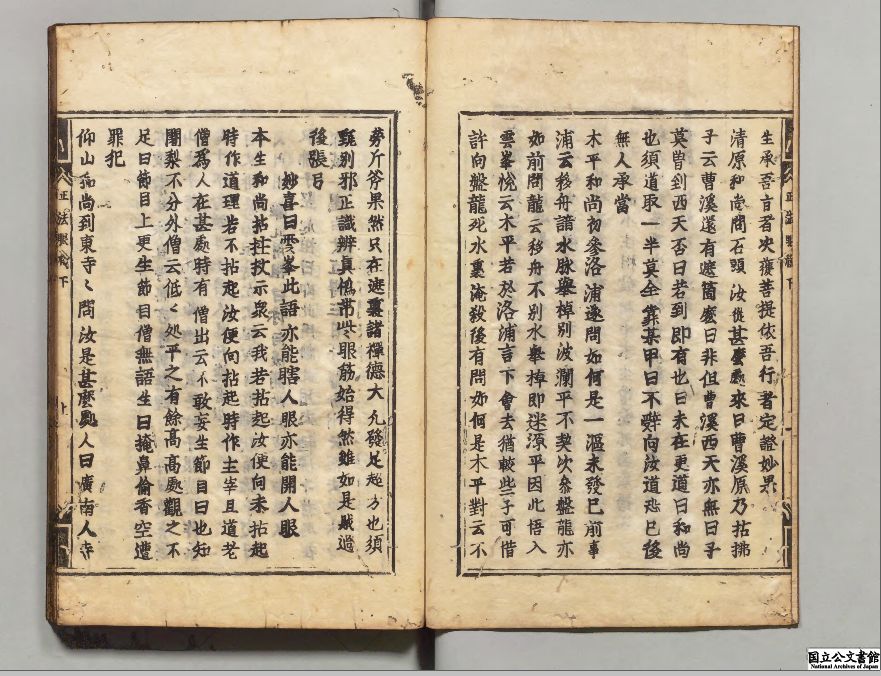 生承吾言者決獲菩提依吾行者定證妙果
清原和尚問石頭汝從甚麼處來曰曹溪原乃拈拂
子云曹溪還有遮箇麼曰非但曹溪西天亦無曰子
莫曾到西天否曰若到即有也曰未在更道曰和尚
也須道取一半莫全靠某甲曰不辭向汝道恐已後
無人承當
木平和尚初參洛浦遂問如何是一漚未發已前事
浦云移舟諳水脉舉棹別波瀾平不契次參盤龍亦
如前問龍云移舟不別水舉棹即迷源平因此悟入
雲峯悅云木平若於洛浦言下會去猶較些子可惜
許向盤龍死水裏淹殺後有問如何是木平對云不
勞斤斧果然只在遮裏諸禪德大凡發足超方也須
甄別邪正識辨真僞帶些眼筋始得然雖如是賊過
後張弓
妙喜曰雲峯此語亦能瞎人眼亦能開人眼
本生和尚拈拄杖示衆云我若拈起汝便向未拈起
時作道理若不拈起汝便向拈起時作主宰且道老
僧爲人在甚處時有僧出云不敢妄生節目曰也知
闍梨不分外僧云低〻処平之有餘高高處觀之不
足曰節目上更生節目僧無語生曰掩鼻偷香空遭
罪犯
仰山和尚到東寺〻問汝是甚麼處人曰廣南人寺
正法眼藏下
正法眼藏下
国立公文書館
National Archives of Japan